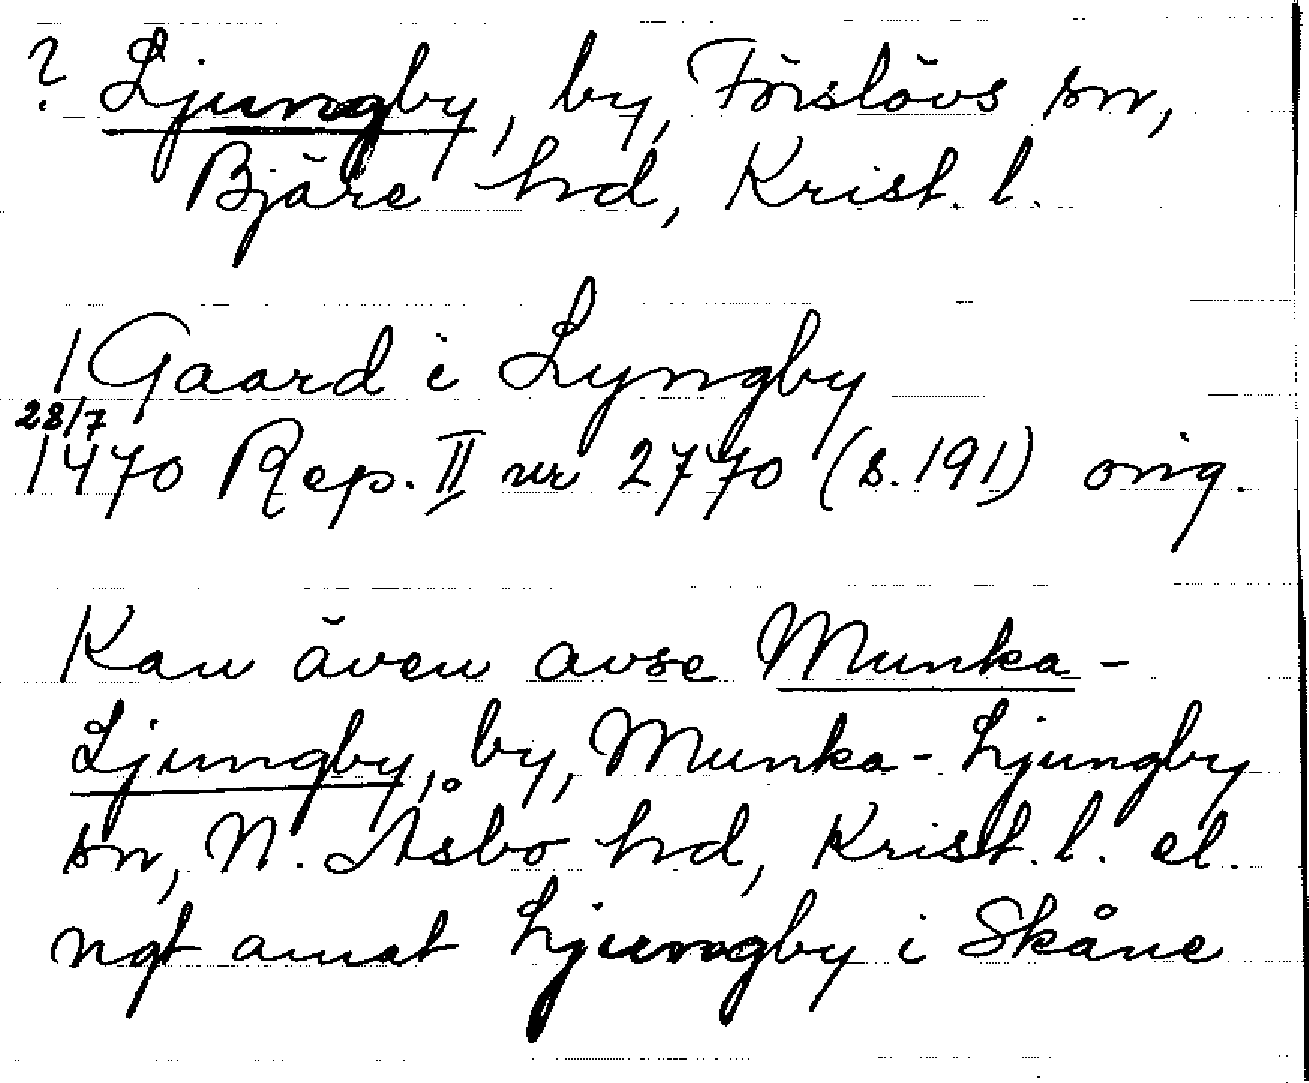 ? Ljungby, by, Förslövs sn,
Bjäre hd, Krist. l.
1 Gaard i Lyngby
28/7
1470 Rep. II nr 2770 (s. 191) orig.
Kan även avse Munka-
Ljungby, by, Munka-Ljungby
sn, N. Åsbo hd, Krist. l. el.
ngt annat Ljungby i Skåne